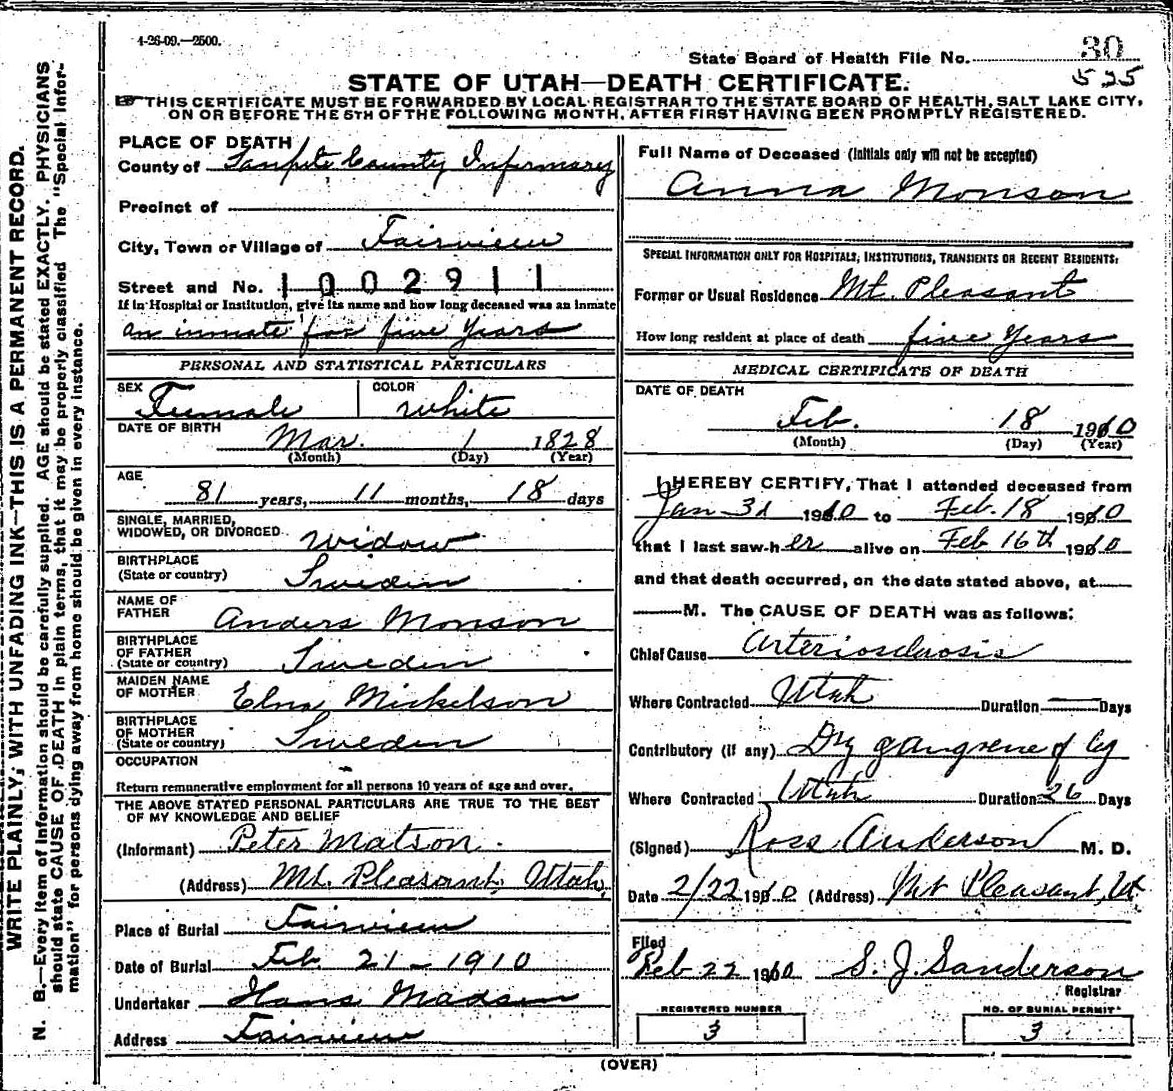 4-26-09.—2500.
State Board of Health File No. 30
525
STATE OF UTAH—DEATH CERTIFICATE.
THIS CERTIFICATE MUST BE FORWARDED BY LOCAL REGISTRAR TO THE STATE BOARD OF HEALTH, SALT LAKE CITY,
ON OR BEFORE THE 5TH OF THE FOLLOWING MONTH, AFTER FIRST HAVING BEEN PROMPTLY REGISTERED.
PLACE OF DEATH
County of Sanpete County Infirmary
Precinct of
City, Town or Village of Fairview
Street and No. 1002911
If in Hospital or Institution, give its name and how long deceased was an inmate
an inmate for five years
PERSONAL AND STATISTICAL PARTICULARS
SEX Female COLOR White
DATE OF BIRTH Mar. 1 1828
(Month) (Day) (Year)
AGE
81 years, 11 months, 18 days
SINGLE, MARRIED,
WIDOWED, OR DIVORCED widow
BIRTHPLACE
(State or country) Sweden
NAME OF
FATHER Anders Monson
BIRTHPLACE
OF FATHER
(State or country) Sweden
MAIDEN NAME
OF MOTHER Elna Mickelson
BIRTHPLACE
OF MOTHER
(State or country) Sweden
OCCUPATION
Return remunerative employment for all persons 10 years of age and over.
THE ABOVE STATED PERSONAL PARTICULARS ARE TRUE TO THE BEST
OF MY KNOWLEDGE AND BELIEF
(Informant) Peter Matson.
(Address) Mt. Pleasant, Utah,
Place of Burial Fairview
Date of Burial Feb. 21 - 1910
Undertaker Hans Madsen
Address Fairview
Full Name of Deceased (Initials only will not be accepted)
Anna Monson
SPECIAL INFORMATION ONLY FOR HOSPITALS, INSTITUTIONS, TRANSIENTS OR RECENT RESIDENTS:
Former or Usual Residence Mt. Pleasant
How long resident at place of death five years
MEDICAL CERTIFICATE OF DEATH
DATE OF DEATH
Feb. 18 1910
(Month) (Day) (Year)
I HEREBY CERTIFY, That I attended deceased from
Jan 31 1910 to Feb. 18 1910
that I last saw h er alive on Feb 16th 1910
and that death occurred, on the date stated above, at
M. The CAUSE OF DEATH was as follows:
Chief Cause Arteriosclerosis
Where Contracted Utah Duration — Days
Contributory (if any) Dry gangrene of leg
Where Contracted Utah Duration 26 Days
(Signed) Ross Anderson M. D.
Date 2/22 1910 (Address) Mt Pleasant, Ut.
Filed
Feb 22 1910 S. J. Sanderson
Registrar
REGISTERED NUMBER
3
NO. OF BURIAL PERMIT
3
(OVER)
WRITE PLAINLY, WITH UNFADING INK—THIS IS A PERMANENT RECORD.
N. B.—Every item of information should be carefully supplied. AGE should be stated EXACTLY. PHYSICIANS
should state CAUSE OF DEATH in plain terms, that it may be properly classified. The "Special Infor-
mation" for persons dying away from home should be given in every instance.